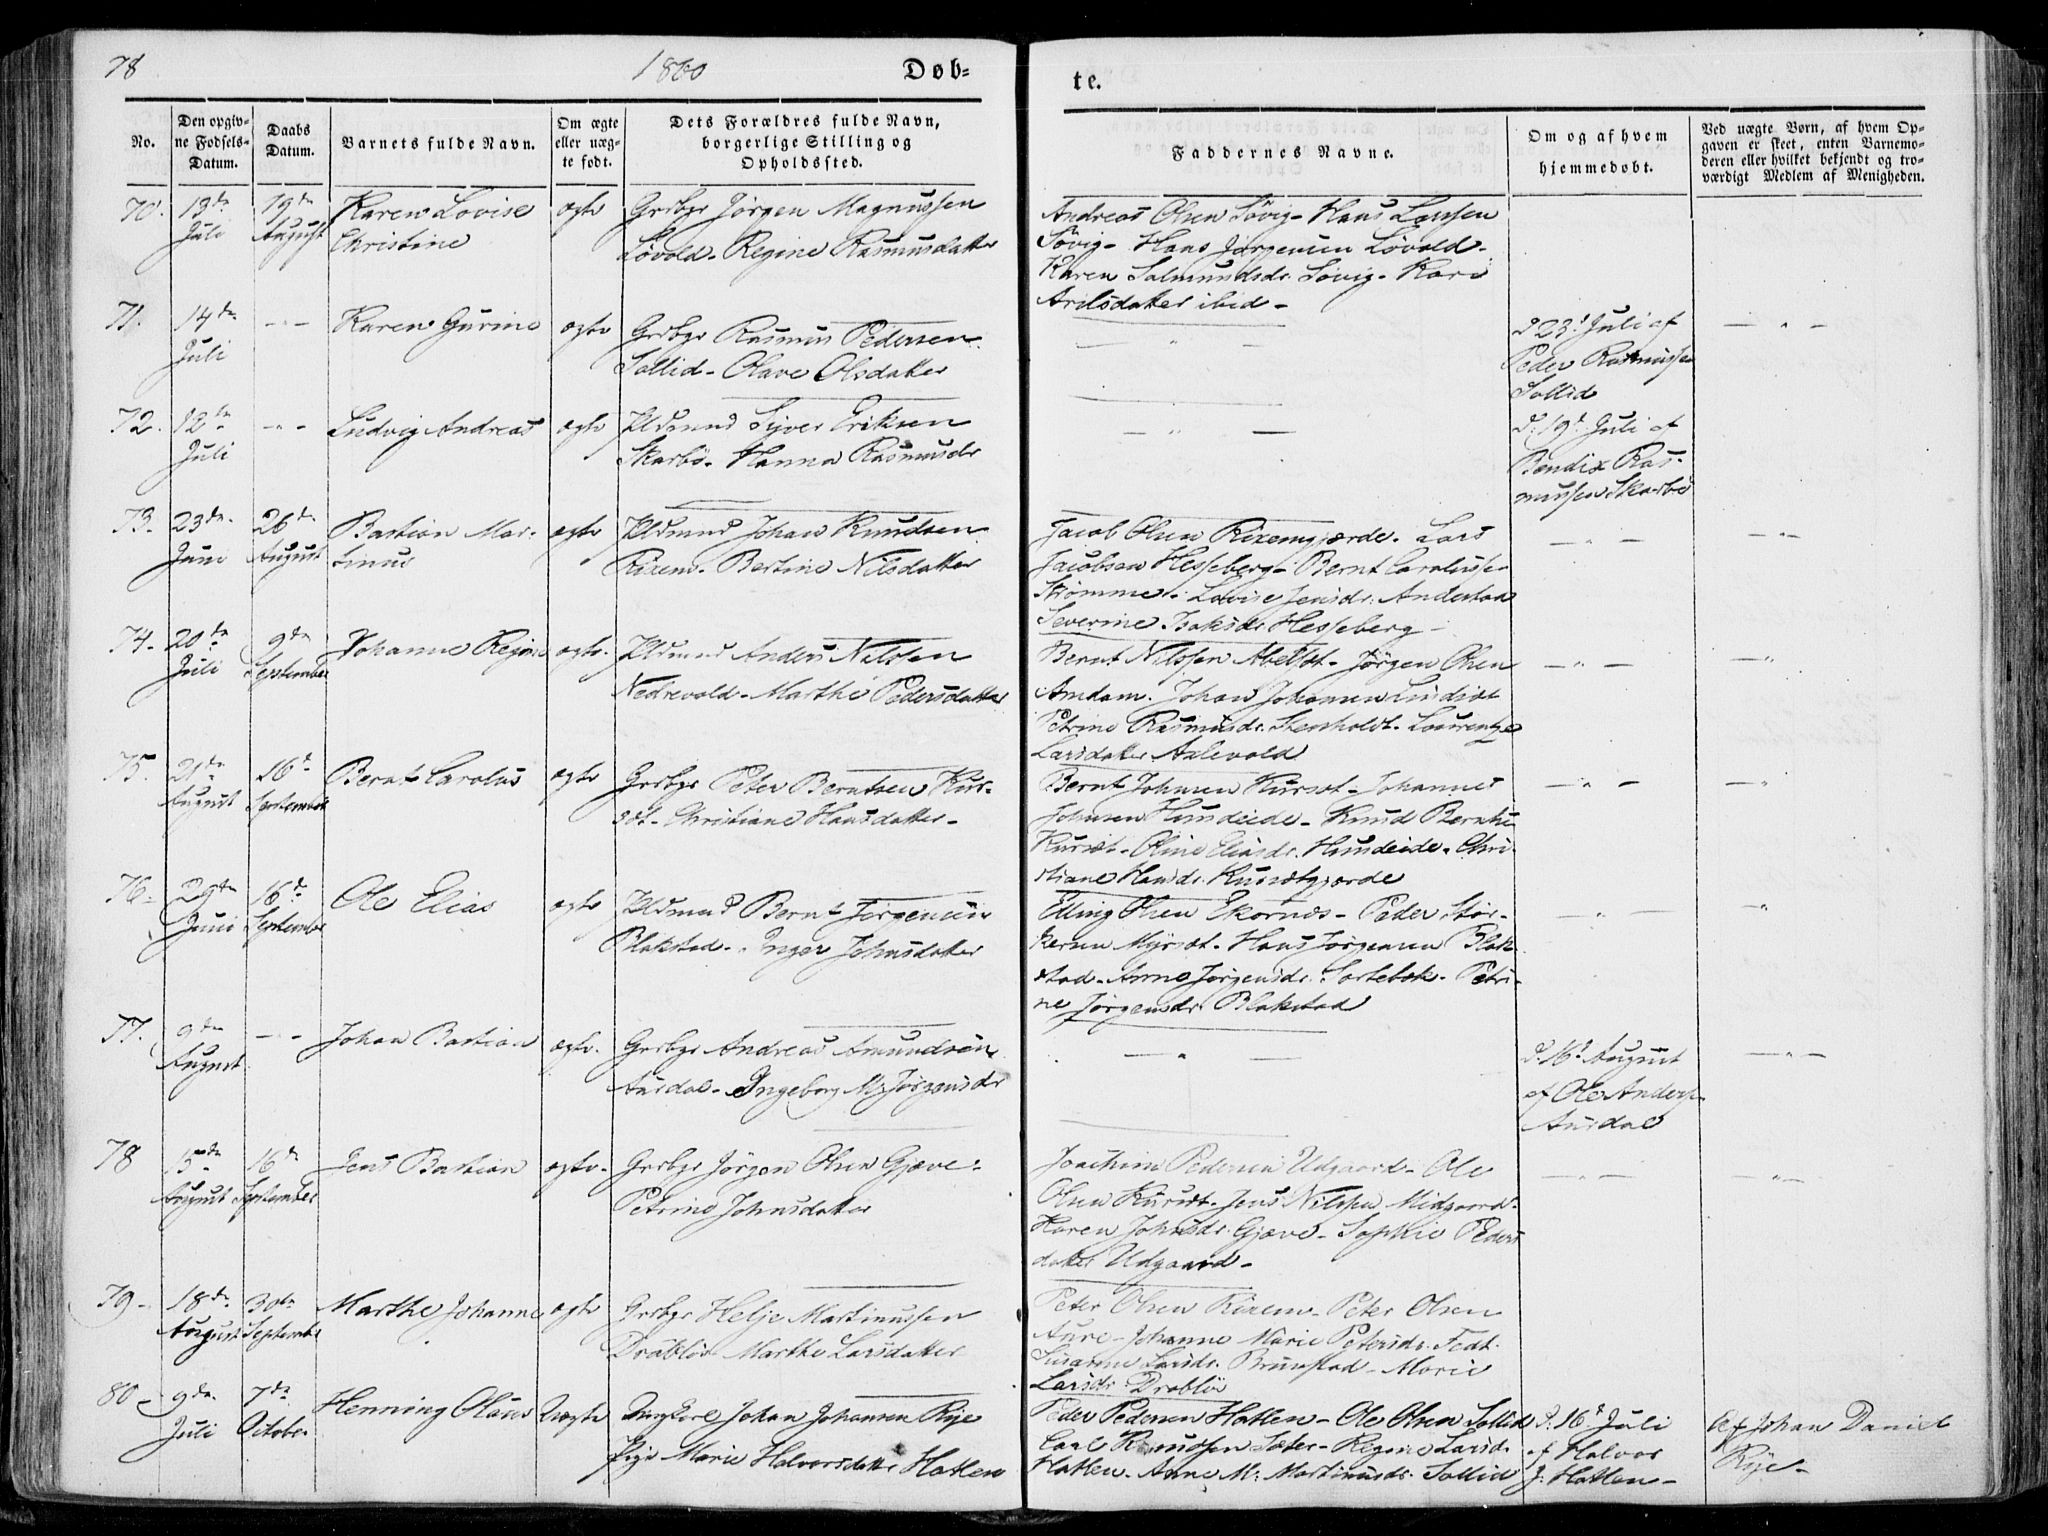 78
1860
Døb=
te.
No.
Den opgiv=
ne Fødsels=
Datum.
Daabs
Datum.
Barnets fulde Navn.
Om ægte
eller uæg=
te født.
Dets Forældres fulde Navn,
borgerlige Stilling og
Opholdssted.
Faddernes Navne.
Om og af hvem
hjemmedøbt.
Ved uægte Børn, af hvem Op=
gaven er skeet, enten Barnemo=
deren eller hvilket bekjendt og tro=
værdigt Medlem af Menigheden.
70.
13de
Juli
19de
August
Karen Lovise
Christine
ægte
Grdbgr Jørgen Magnussen
Løvold - Regine Rasmusdatter
Andreas Olsen Søvig - Hans Larssen
Søvig - Hans Jørgensen Løvold -
Karen Salmundsdr. Søvig - Kari
Arilsdatter ibid -
71.
14de
Juli
- " -
Karen Gurine
ægte
Grdbgr Rasmus Pedersen
Sollid - Olave Olsdatter
- " -
d. 23d Juli af
Peder Rasmussen
Sollid
- " -
72.
12te
Juli
- " -
Ludvig Andreas
ægte
Pldsmand Syver Eriksen
Skarbø - Hanna Rasmusdr
- " -
d. 19d Juli af
Bendix Ras-
mussen Skarbø
73.
23de
Juni
26de
August
Bastian Mar-
tinus
ægte
Pldsmand Johan Knudsen
Rixem - Bertine Nilsdatter
Jacob Olsen Rixemgjærde - Lars
Jacobsen Hesseberg - Bernt Carolusse-
Strømme - Lovise Jensdr.
Severine Isaksdr Hesseberg -
- " -
- " -
74.
20de
Juli
9de
September
Johanne Regine
ægte.
Pldsmand Anders Nilssen
Nedrevold - Marthe Pedersdatter
Bernt Nilssen Abelsæt - Jørgen Olsen
Amdam. Johan Johansen Lindsæt
Petrine Rasmusdr. Stenholdt - Laurentze
Larsdatter Axlevold
- " -
- " -
75.
21de
August
16d
September
Bernt Carolus
ægte
Grdbgr Peter Berntsen Kur-
sæt - Christiane Hansdatter -
Bernt Johnsen Kursæt - Johannes
Johnsen Hundeide - Knud Bernts.
Kursæt - Oline Eliasdr. Hundeide - Chri-
stiane Hansdr. Kursætgjærde
- " -
- "
76.
29de
Juni
16d
September
Ole Elias
ægte
Pldsmand Bernt Jørgensen
Blakstad - Inger Johnsdatter
Elling Olsen Ekornæs - Peder Stor-
kersen Myrsæt - Hans Jørgensen Blak-
stad - Anne Jørgensdr. Sortebek - Petri-
ne Jørgensdr. Blakstad
- " -
- "
77.
9de
August
- " -
Johan Bastian
ægte.
Grdbgr Andreas Amundsen
Aursdal - Ingeborg M: Jørgensdr
- " -
d. 16d August
af Ole Anders.
Aursdal
- " -
78
15de
August
16de
September
Jens Bastian
ægte.
Grdbgr Jørgen Olsen Gjæve -
Petrine Johnsdatter
Joachim Pedersen Udgaard - Ole
Olsen Kursæt - Jens Nilssen Midgaard -
Karen Johnsdr. Gjæve - Sophie Peders
datter Udgaard -
- " -
- " -
79 -
18de
August
30de
September
Marthe Johanne
ægte
Grdbgr Helje Martinussen
Drabløs - Marthe Larsdatter
Peter Olsen Rixem - Peter Olsen
Aure - Johanne Marie Petersdr. Tedt.
Susanne Larsdr. Brunstad - Marie
Larsdr. Drabløs
80 -
9de
Juli
7de
October
Henning Olaus
Uægte
Ungkarl Johan Johansen Røje
Pige Marie Halvorsdatter Hatlen
Peder Pedersen Hatlen - Ole Olsen Sollid
Carl Knudsen Sæter - Regine Larsd.
Hatlen - Anne M: Martinusdr. Sollid
d. 16d Juli
af Halvor
J: Hatlen -
Af Johan Daniel
Røje -